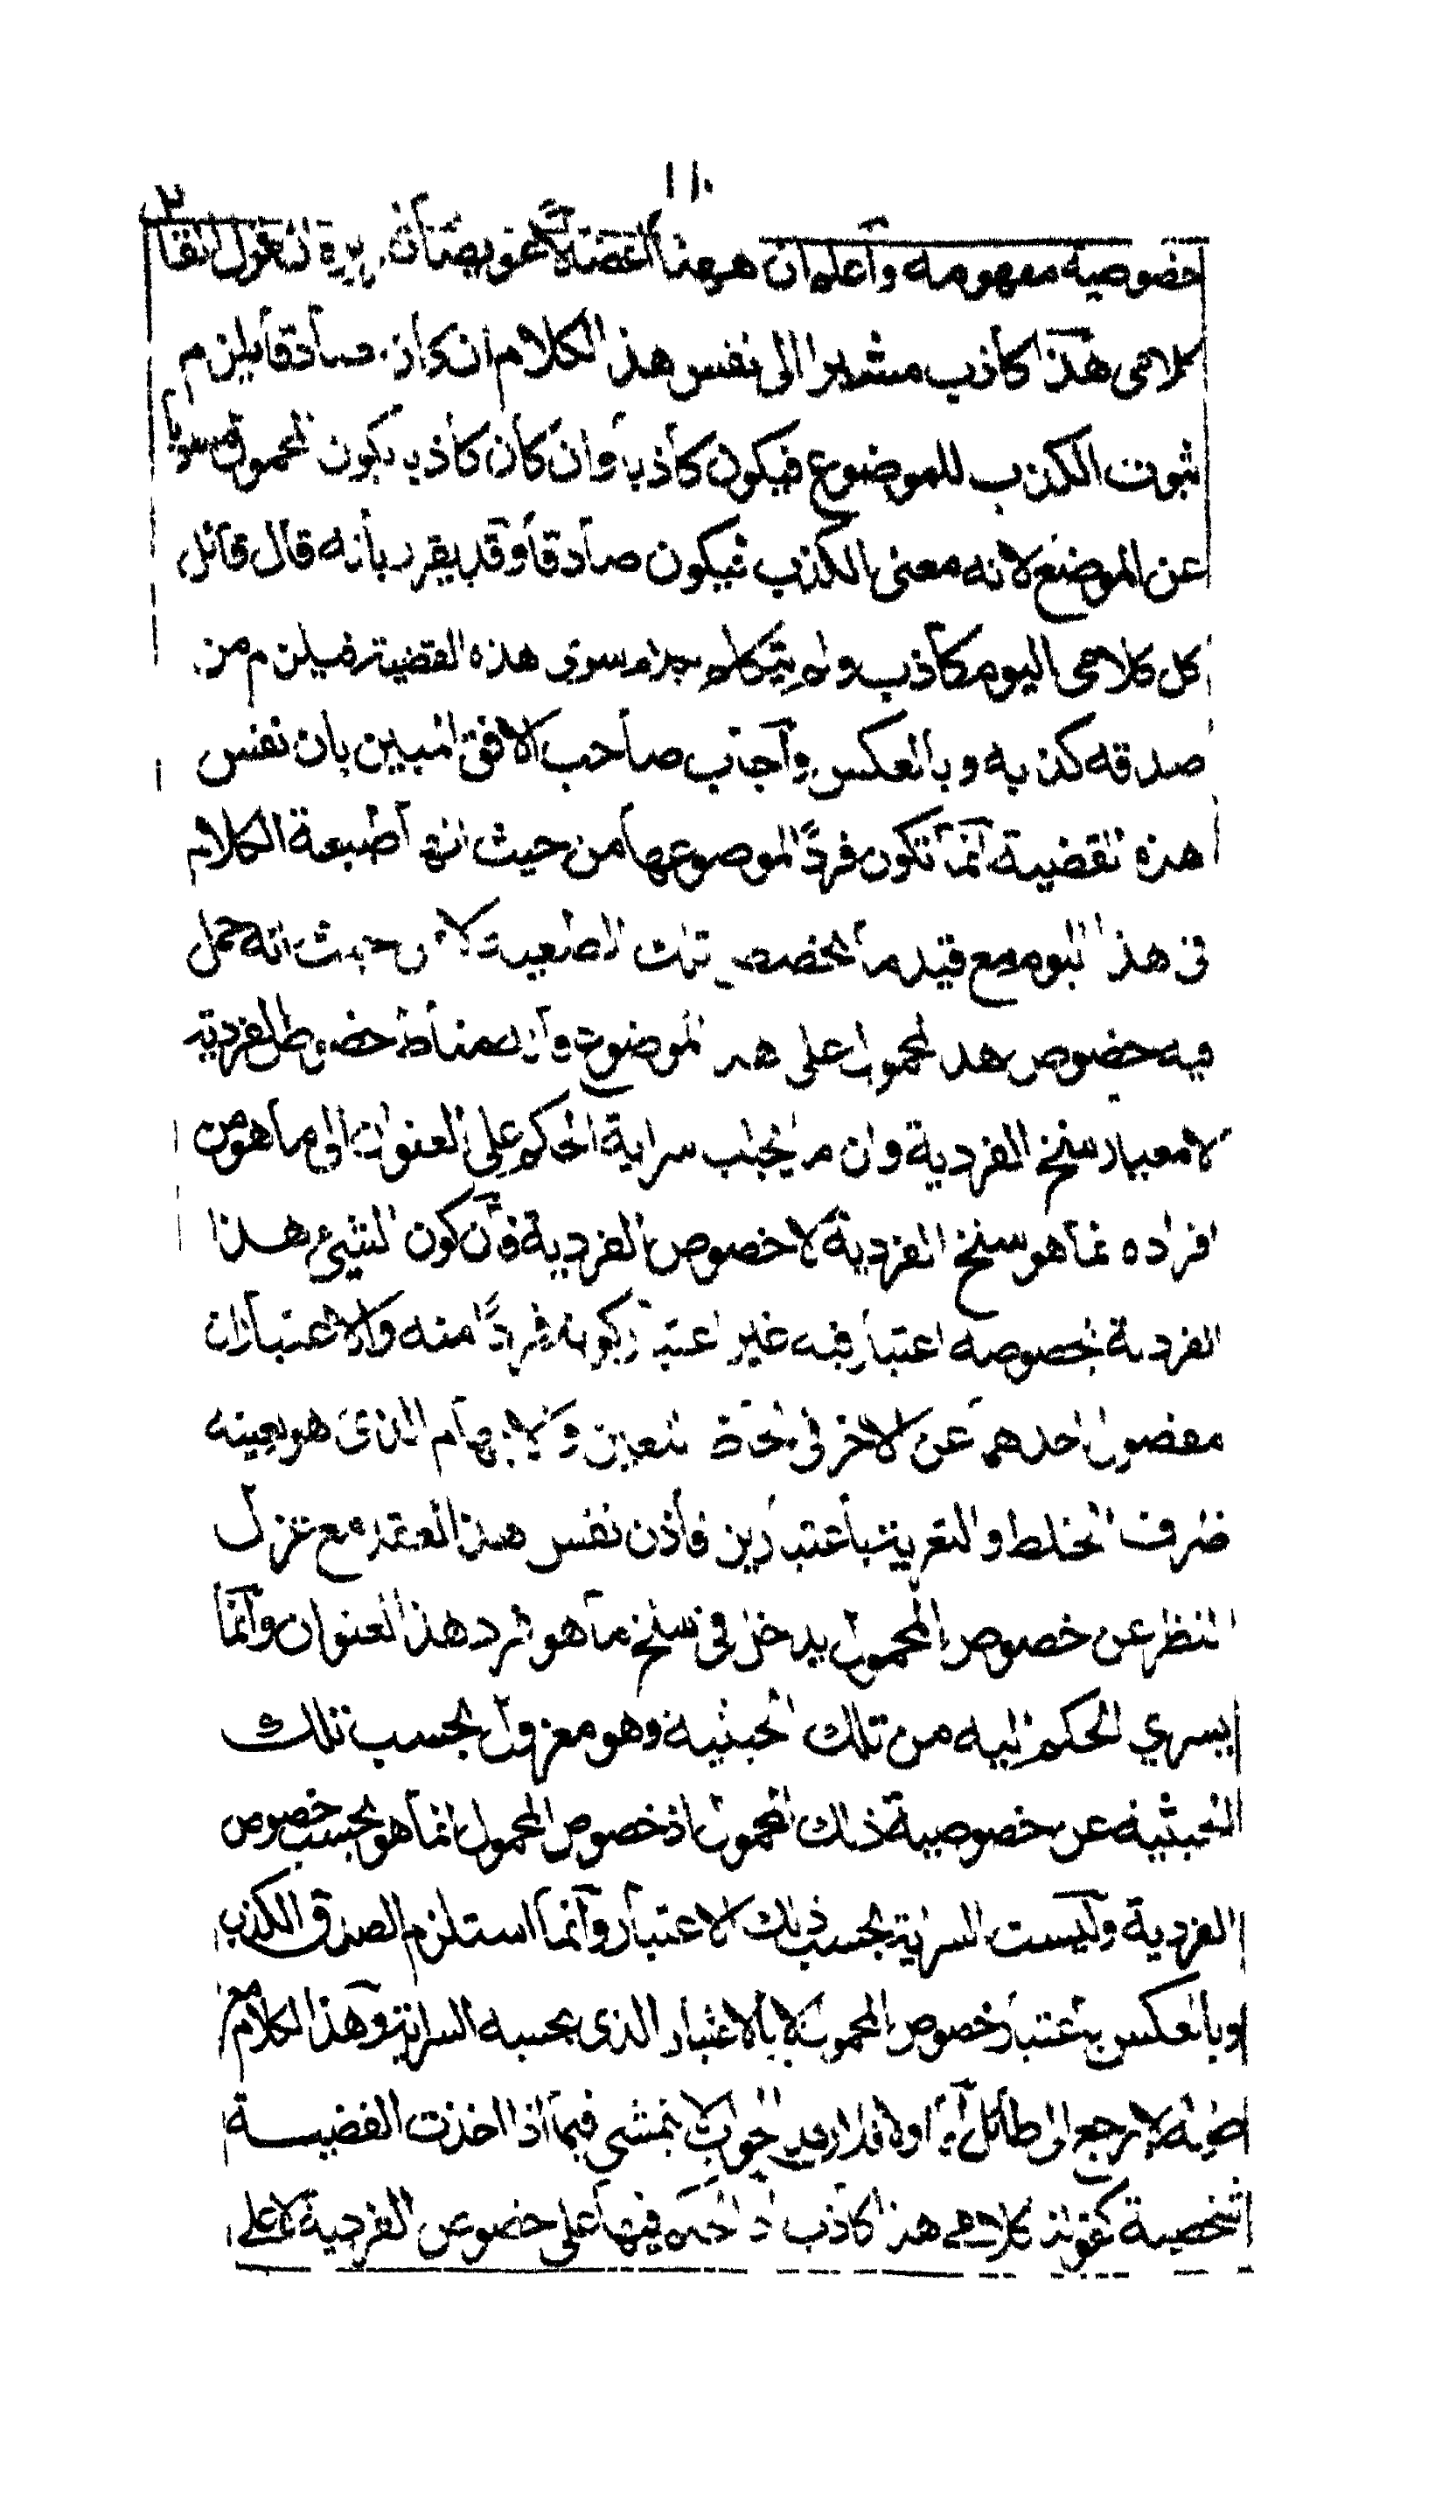 ١١٠
٢
خصوصية مفهومه وآعلم ان ههنا
كلامى هذا كاذب مشيرا الى نفس هذا الكلام ان كان صادقا يلزم
ثبوت الكذب للموضوع فيكون كاذبا وان كان كاذبا يكون المحمول مسلوبا
عن الموضوع لانه معنى الكذب فيكون صادقا وقد يقرر بانه قال قائل
كل كلامى اليوم كاذب ولم يتكلم سوى هذه القضية فيلزم من
صدقه كذبه وبالعكس وآجاب صاحب الافق المبين بان نفس
هذه القضية انما تكون فردًا لموضوعها من حيث انها طبيعة الكلام
فى هذا اليوم مع قيد ما يخصص تلك الطبيعة لا من حيث انه حمل
فيه خصوص هذا المحمول على هذا الموضوع مناط خصوص الفردية
لا معيار سنخ الفردية وان ما يجب سراية الحكم على العنوان الى ما هو من
افراده بما هو سنخ الفردية لا خصوص الفردية فان كون الشيئ هذا
الفرد بخصوصه اعتبار فيه غير اعتبار كونه فردًا منه والاعتباران
مفصول احدهما عن الاخر فى لحاظ التعين والابهام الذى هو بعينه
ظرف الخلط والتعرية باعتبارين فاذن نفس هذا العقد مع عزل
النظر عن خصوص المحمول يدخل فى سنخ ما هو فرد هذا العنوان وانما
يسري الحكم اليه من تلك الحيثية وهو معزول بحسب تلك
الحيثية عن خصوصية ذلك المحمول اذ خصوص المحمول انما هو بحسب خصوص
الفردية وليست السراية بحسب ذلك الاعتبار وانما استلزم الصدق الكذب
وبالعكس باعتبار خصوص المحمول لا بالاعتبار الذى بحسبه السراية وهذا الكلام مع
طوله لا يرجع الى طائل اما اولا فلان هذا الجواب لا يتمشى فيما اذا اخذت القضية
شخصية كقولنا كلامى هذا كاذب اذ الحكم فيها على خصوص الفردية لا على